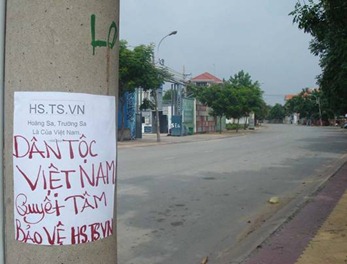 LG
HS.TS.VN
Hoàng Sa, Trường Sa
Là Của Việt Nam
DÂN TỘC
VIỆT NAM
Quyết TÂM
BẢO VỆ HS.TS.VN